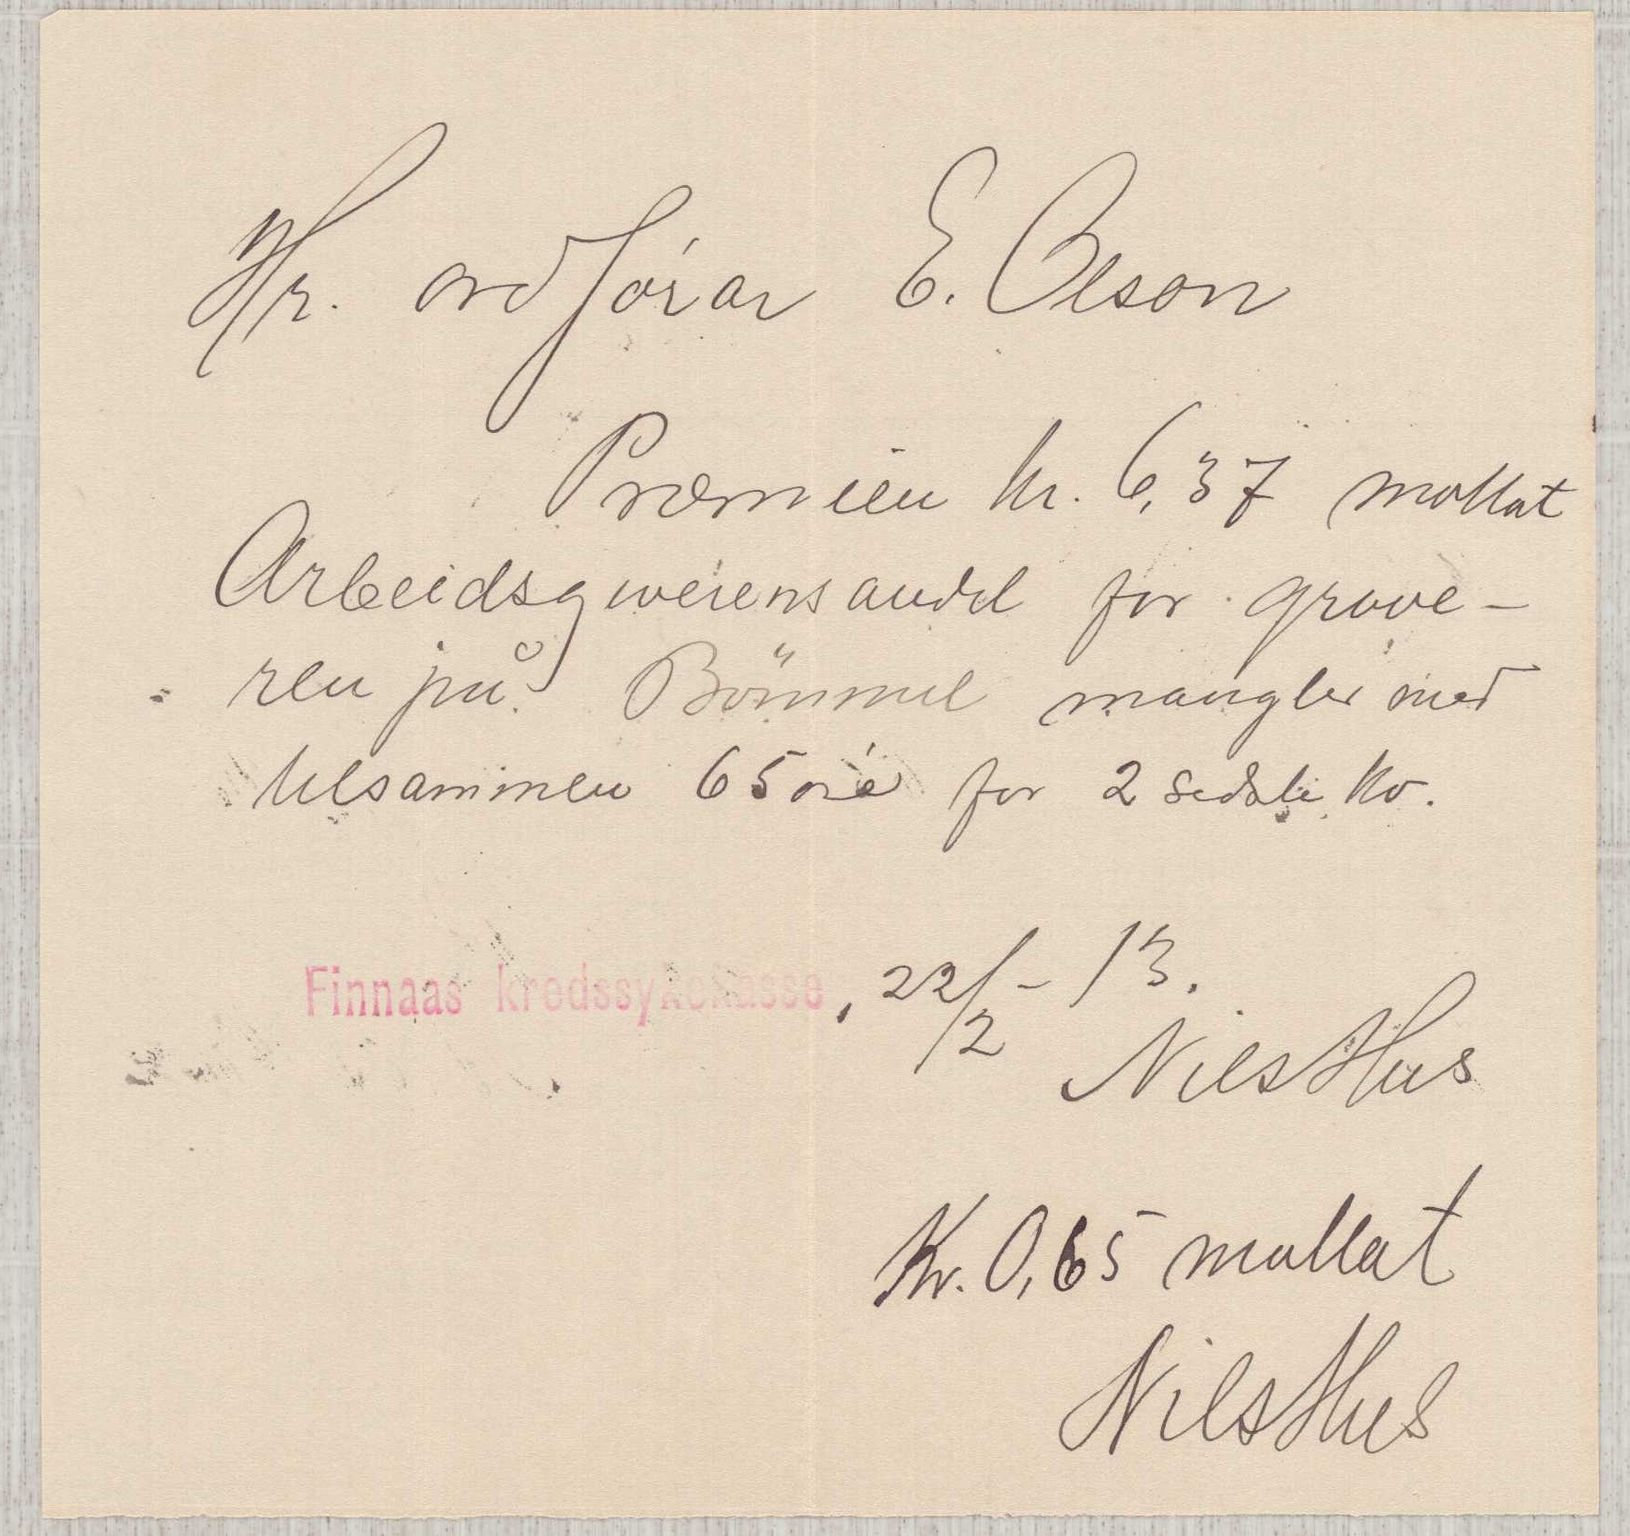 Hr. ordførar E. Olson
Præmien kr. 6,37 mottat
Arbeidsgiverens andel for grave-
ren på Bömmel mangler med
tilsammen 65 øre for 2 sidste kv.
Finnaas kredssykekasse, 22/2 - 13.
Nils Hus
Kr. 0,65 mottat
Nils Hus